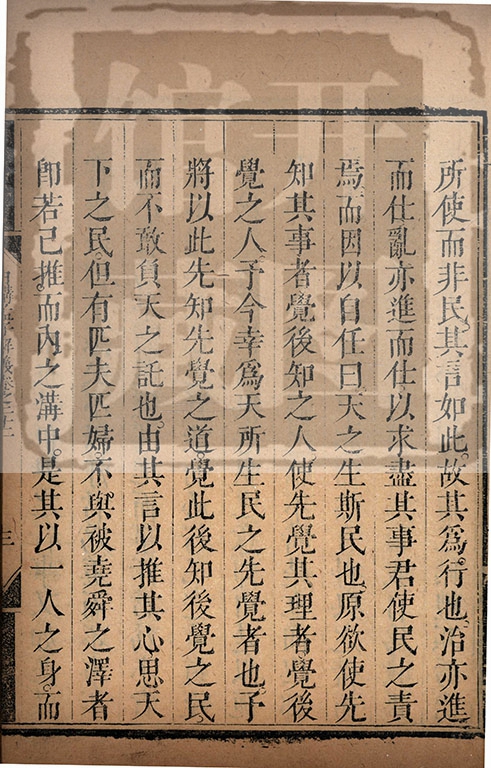 所使而非民。其言如此。故其爲行也。治亦進
而仕亂亦進而仕以求盡其事君使民之責
焉而因以自任曰天之生斯民也。原欲使先
知其事者覺後知之人使先覺其理者覺後
覺之人予今幸爲天所生民之先覺者也。予
將以此先知先覺之道。覺此後知後覺之民。
而不敢負天之託也。由其言以推其心思天
下之民。但有匹夫匹婦。不與被堯舜之澤者
卽若已推。而內之溝中。是其以一人之身。而
三